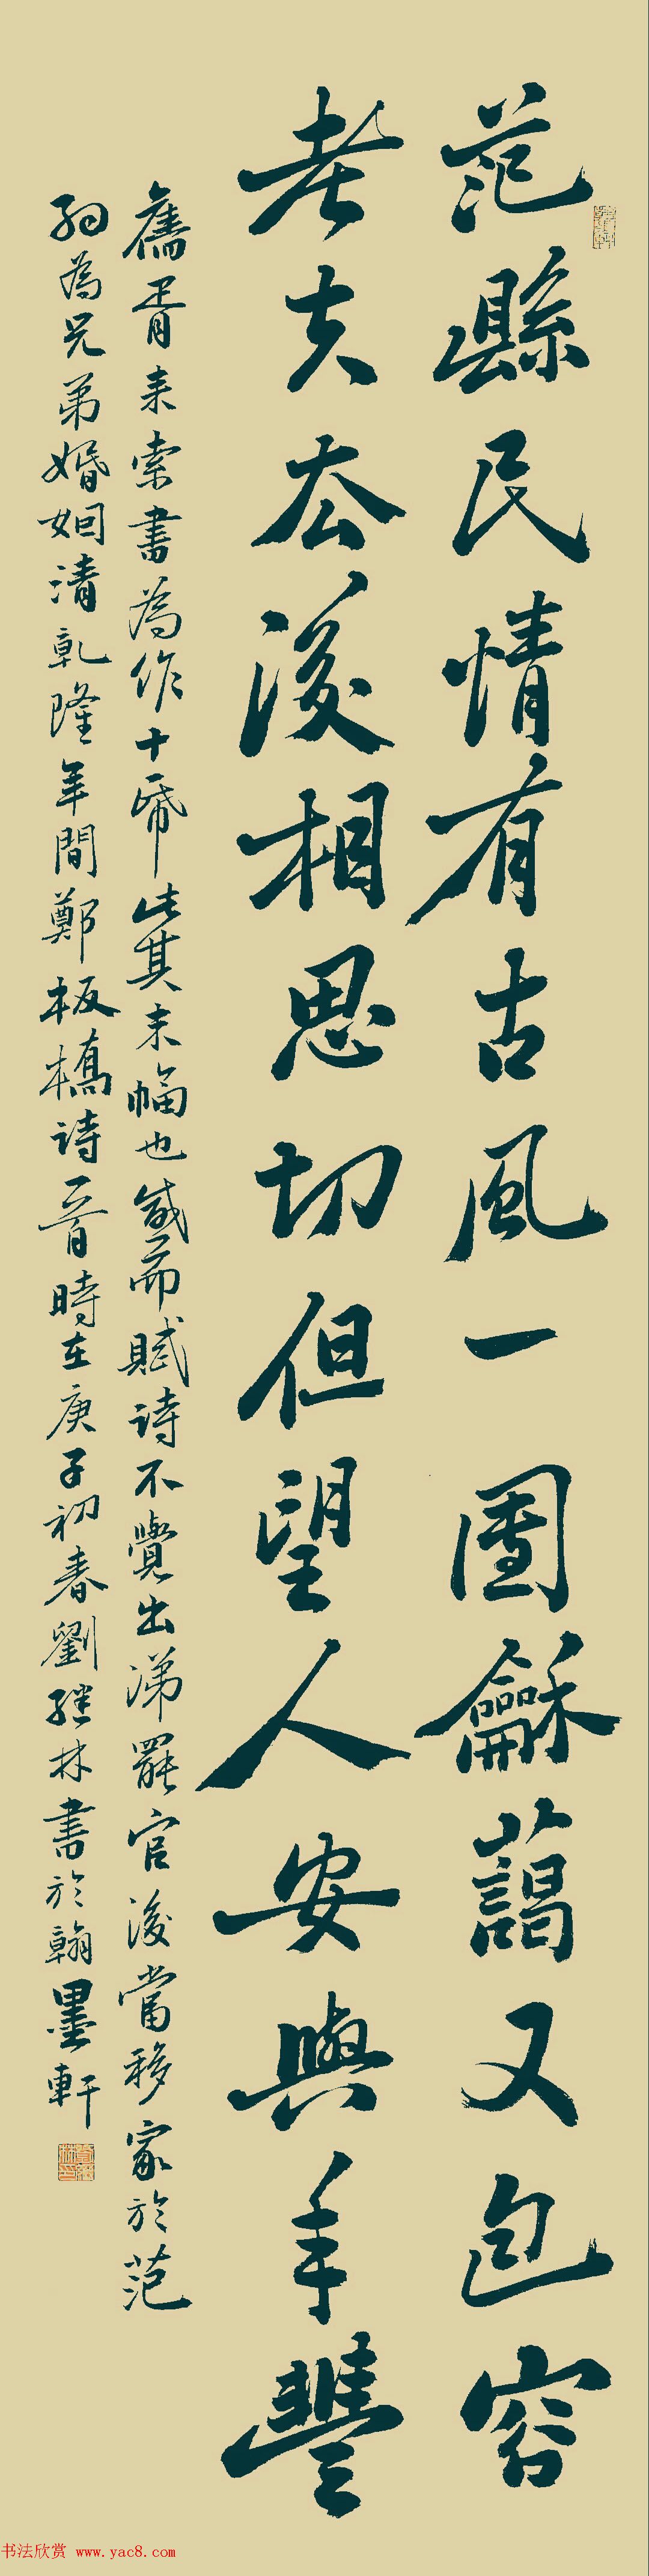 范縣民情有古風一團龢藹又包容
老夫去後相思切但望人安與年豐
舊胥來索書為作十紙此其末幅也感而賦詩不覺出涕罷官後當移家於范
約為兄弟婚姻清乾隆年間鄭板橋詩一首時在庚子初春劉繼林書於翰墨軒
书法欣赏 www.yac8.com